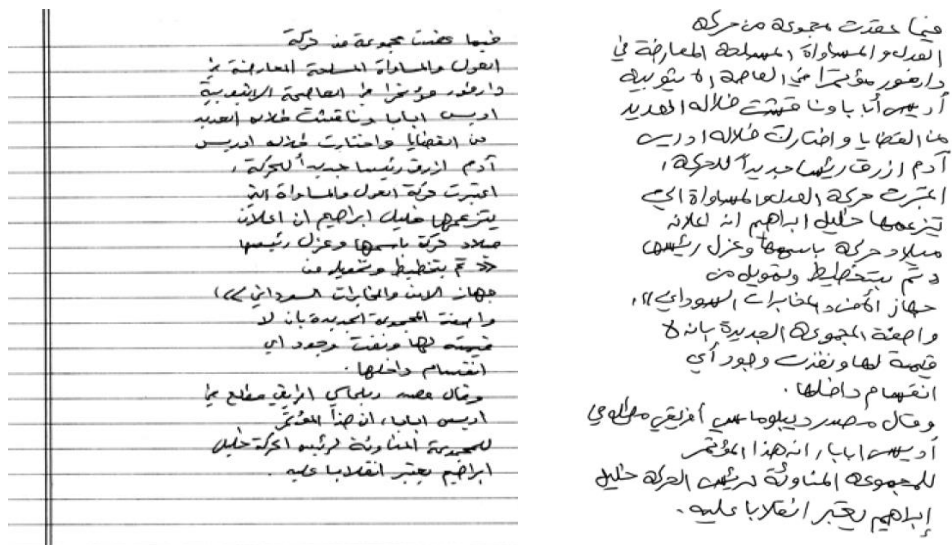 فيما عقدت مجموعة من حركة
العدل والمساواة المسلحة المعارضة في
دارفور مؤتمرا في العاصمة الاثيوبية
اديس ابابا وناقشت خلاله العديد
من القضايا واختارت خلاله ادريس
آدم ازرق رئيسا جديداً للحركة،
اعتبرت حركة العدل والمساواة التي
يتزعمها خليل ابراهيم ان اعلان
ميلاد حركة باسمها وعزل رئيسها
«تم بتخطيط وتمويل من
جهاز الامن والمخابرات السوداني»،
واصفة المجموعة الجديدة بان لا
قيمة لها ونفت وجود اي
انقسام داخلها.
وقال مصدر دبلماسي افريقي مطلع في
اديس ابابا، ان هذا المؤتمر
للمجموعة المناوئة لرئيس الحركة خليل
ابراهيم يعتبر انقلابا عليه.
فيما عقدت مجموعة من حركة
العدل والمساواة المسلحة المعارضة في
دارفور مؤتمرا في العاصمة الاثيوبية
أديس أبابا وناقشت خلاله العديد
من القضايا واختارت خلاله ادريس
آدم ازرق رئيسا جديداً للحركة،
اعتبرت حركة العدل والمساواة التي
يتزعمها خليل ابراهيم ان اعلان
ميلاد حركة باسمها وعزل رئيسها
تم بتخطيط وتمويل من
جهاز الأمن والمخابرات السوداني»،
واصفة المجموعة الجديدة بان لا
قيمة لها ونفت وجود أي
انقسام داخلها.
وقال مصدر ديبلوماسي أفريقي مطلع في
أديس ابابا، ان هذا المؤتمر
للمجموعة المناوئة لرئيس الحركة خليل
إبراهيم يعتبر انقلابا عليه.